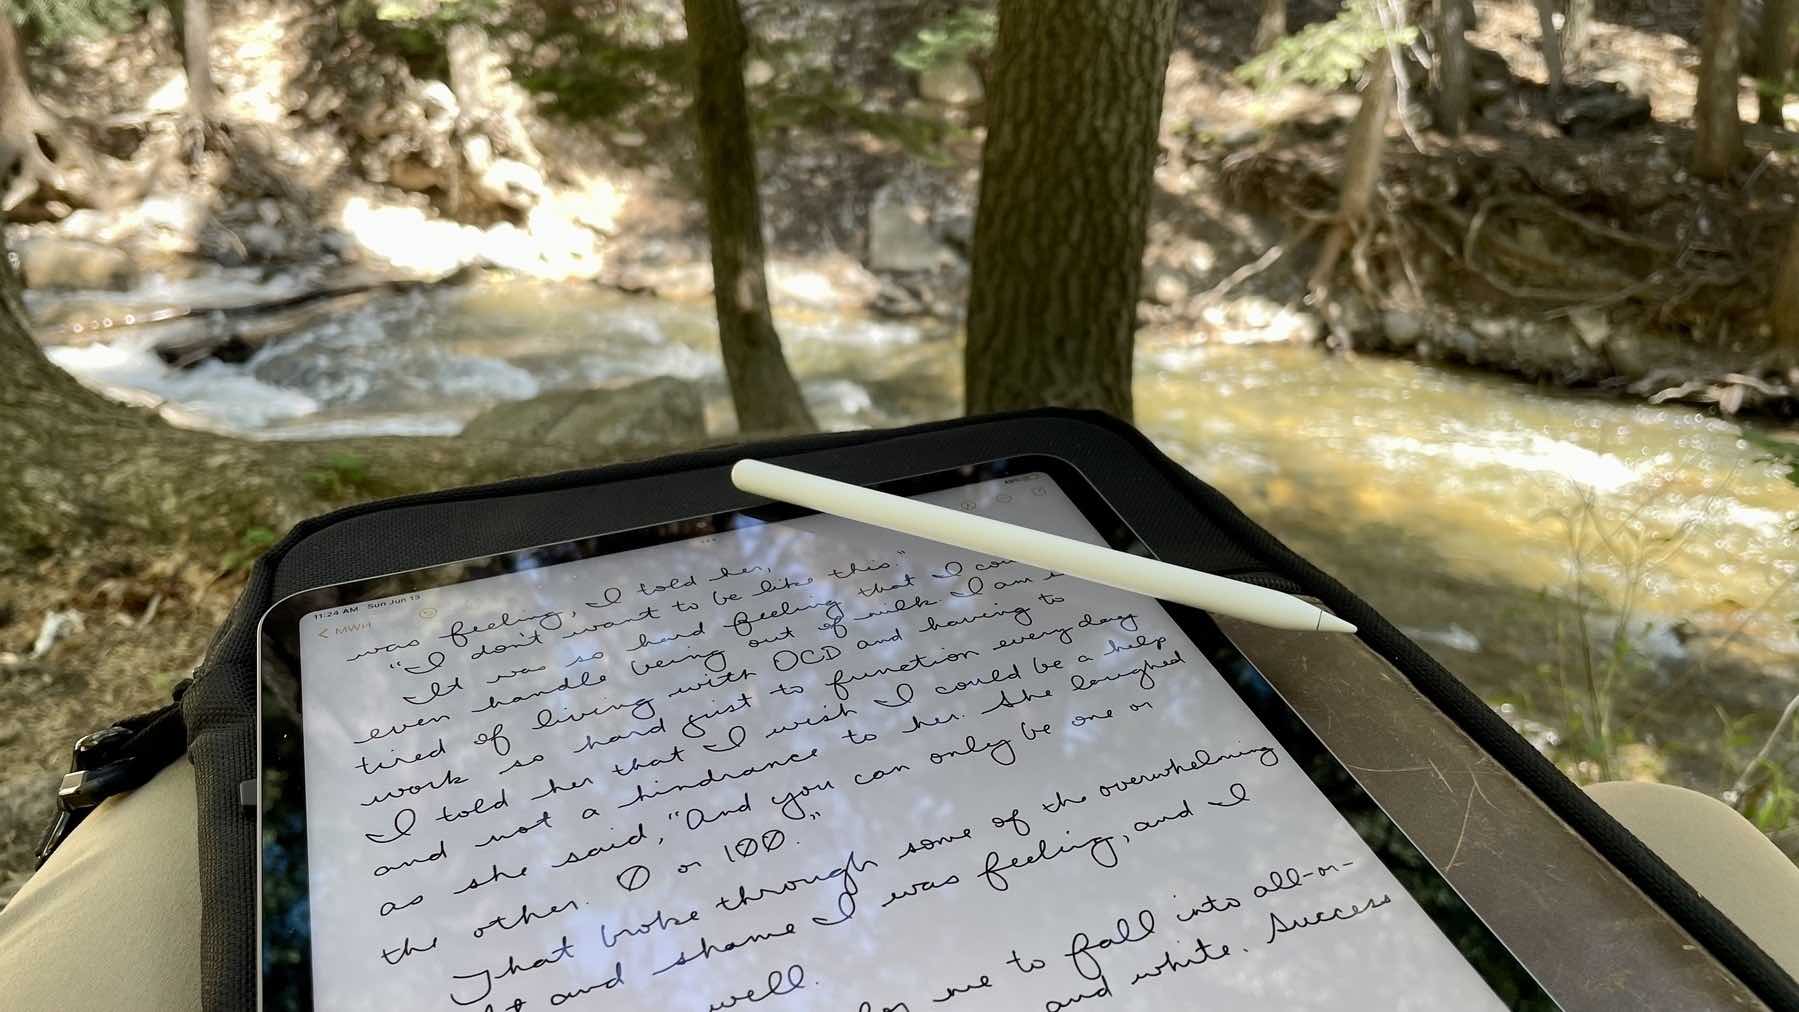 11:24 AM Sun Jun 13
< MWH
was feeling, I told her,
"I don't want to be like this."
It was so hard feeling that I
even handle being out of milk. I am
tired of living with OCD and having to
work so hard just to function every day
I told her that I wish I could be a help
and not a hindrance to her. She laughed
as she said, "And you can only be one or
the other. 0 or 100."
That broke through some of the overwhelming
and shame I was feeling, and I
well.
me to fall into all-or-
and white. Success